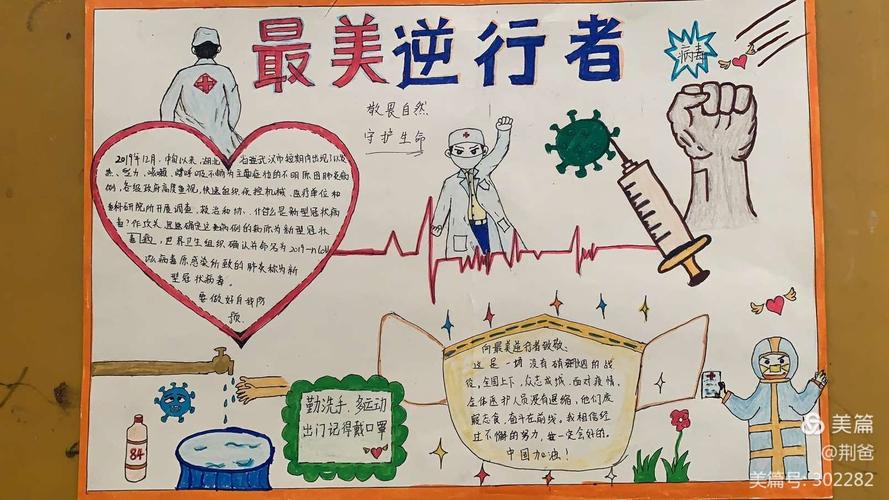 最美逆行者
病毒
敬畏自然
守护生命
2019年12月,中旬以来,湖北
省武汉市短期内出现了以发
热、乏力、咳嗽、呼吸不畅为主要症状的不明原因肺炎病
例,各级政府高度重视,快速组织疾控机械、医疗单位和
科研院所开展调查、救治和协,什么是新型冠状病
毒?作攻关,且确定这类病例的病原为新型冠状
世界卫生组织确认并命名为2019-nCoV
病毒原感染所致的肺炎称为新
型冠状病毒。
要做好自我防
预。
向最美逆行者致敬:
这是一场没有硝烟的战
役,全国上下,众志成城。面对疫情,
全体医护人员没有退缩,他们废
寝忘食,奋斗在前线。我相信经
过不懈的努力,一定会好的。
中国加油!
勤洗手、多运动
出门记得戴口罩
84
美篇
@荆爸
美篇号: 302282